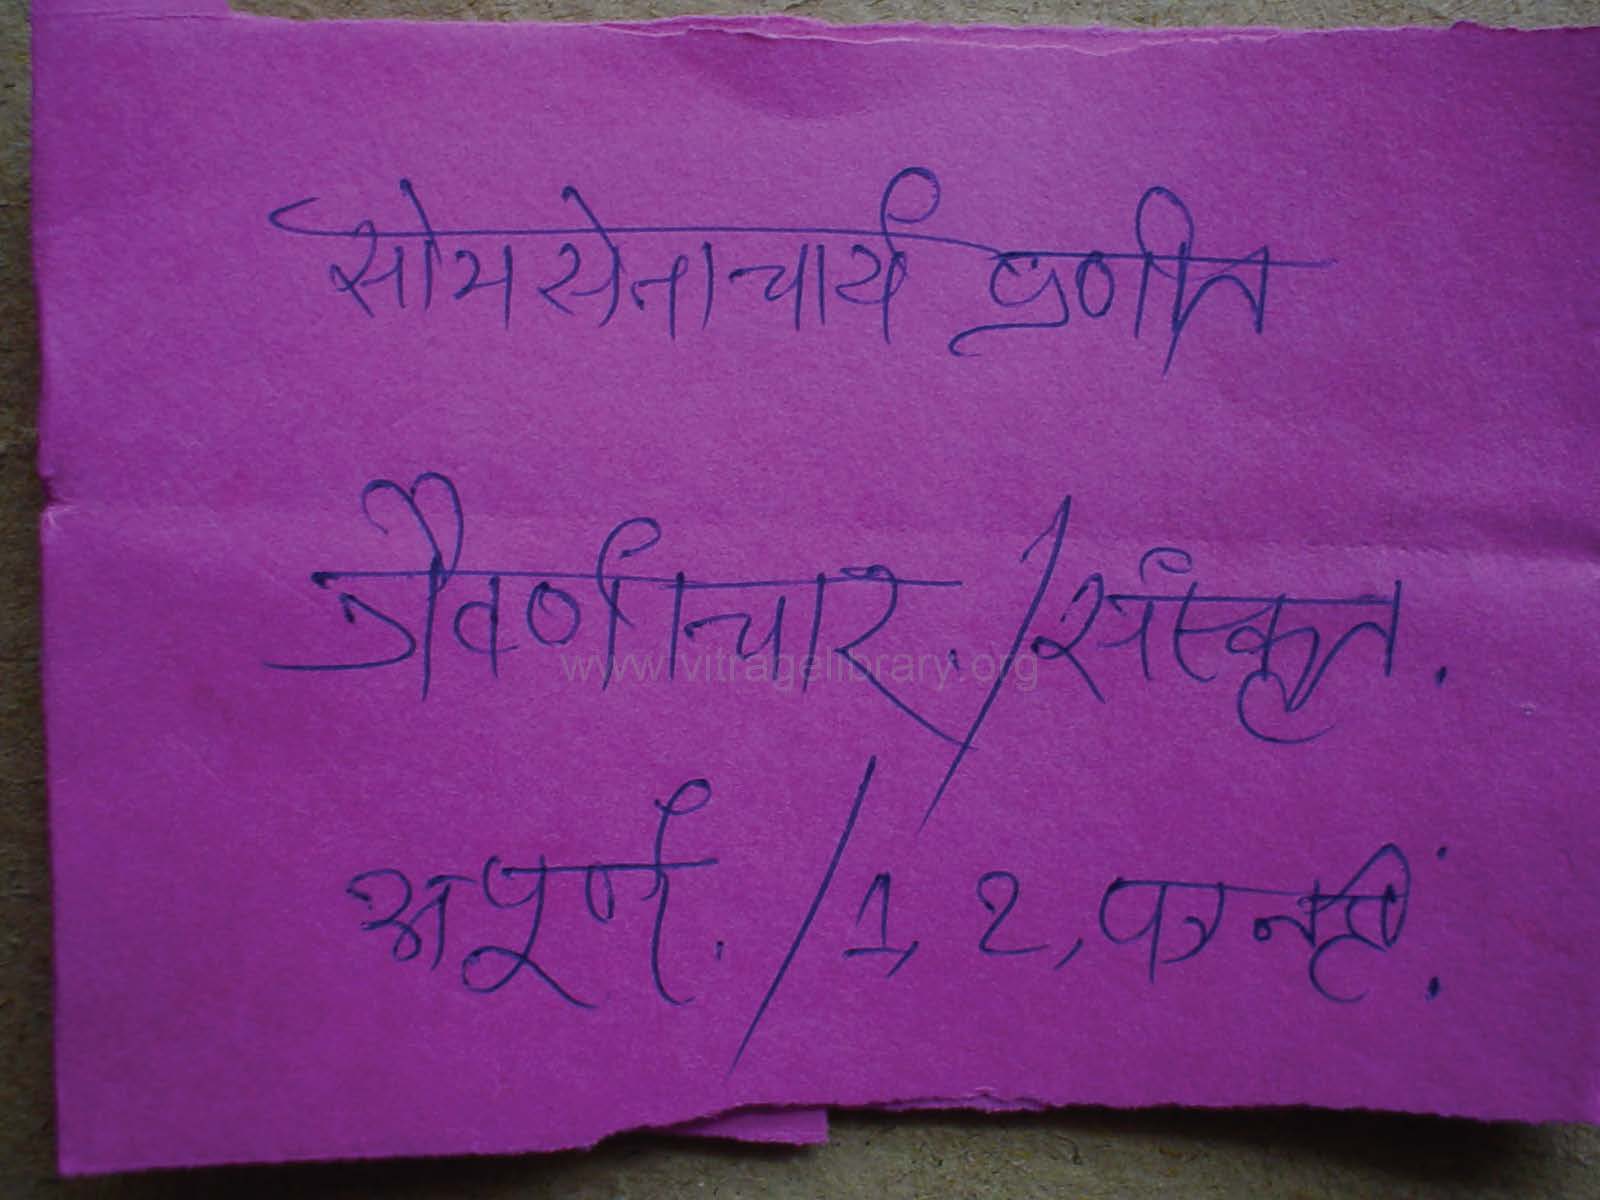 सोमसेनाचार्य प्रणीत
त्रैवर्णाचार. / संस्कृत.
www.vitragelibrary.org
अपूर्ण. / 1, 2, पत्र नहीं.